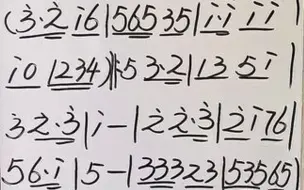 (3·2̇ i̇6|565 35|i̇·i̇ i̇ i̇
i̇0 1234)‖:5 3·2|13 5i̇
3 2̇·3̇|i̇–|2̇ 2̇·3̇|2̇i̇76|
56·i̇|5–|33323|53565|